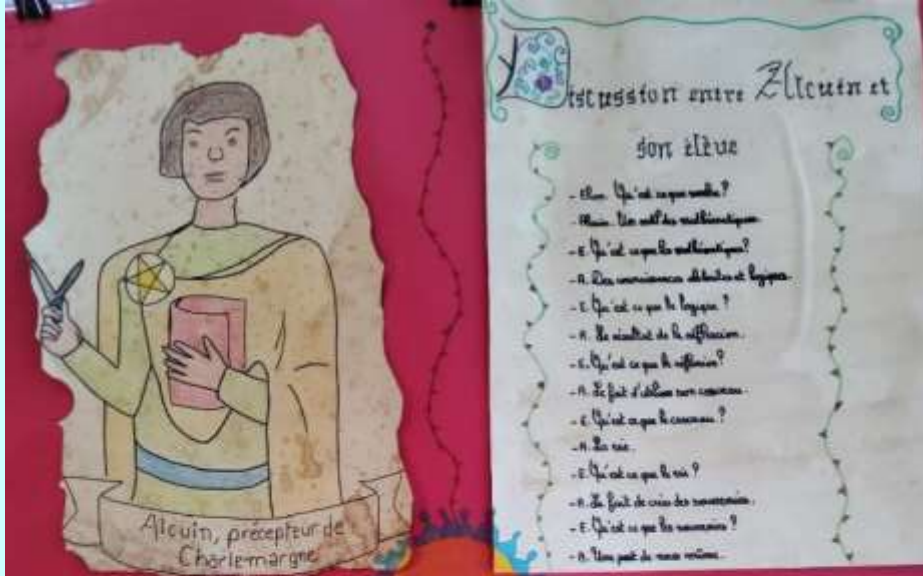 Alcuin, précepteur de
Charlemargne
Discussion entre Alcuin et
son élève
- Qu'est ce que ?
- Un outil des mathématiques.
- E. Qu'est ce que les mathématiques?
- A. Des connaissances abstraites et logiques.
- E. Qu'est ce que la logique ?
- A. Le résultat de la réflexion.
- E. Qu'est ce que la réflexion?
- A. Le fait d'utiliser son cerveau.
- E. Qu'est ce que le cerveau ?
- A. La vie.
- E. Qu'est ce que la vie ?
- A. Le fait de créer des souvenirs.
- E. Qu'est ce que les souvenirs ?
- A. Une part de nous même.